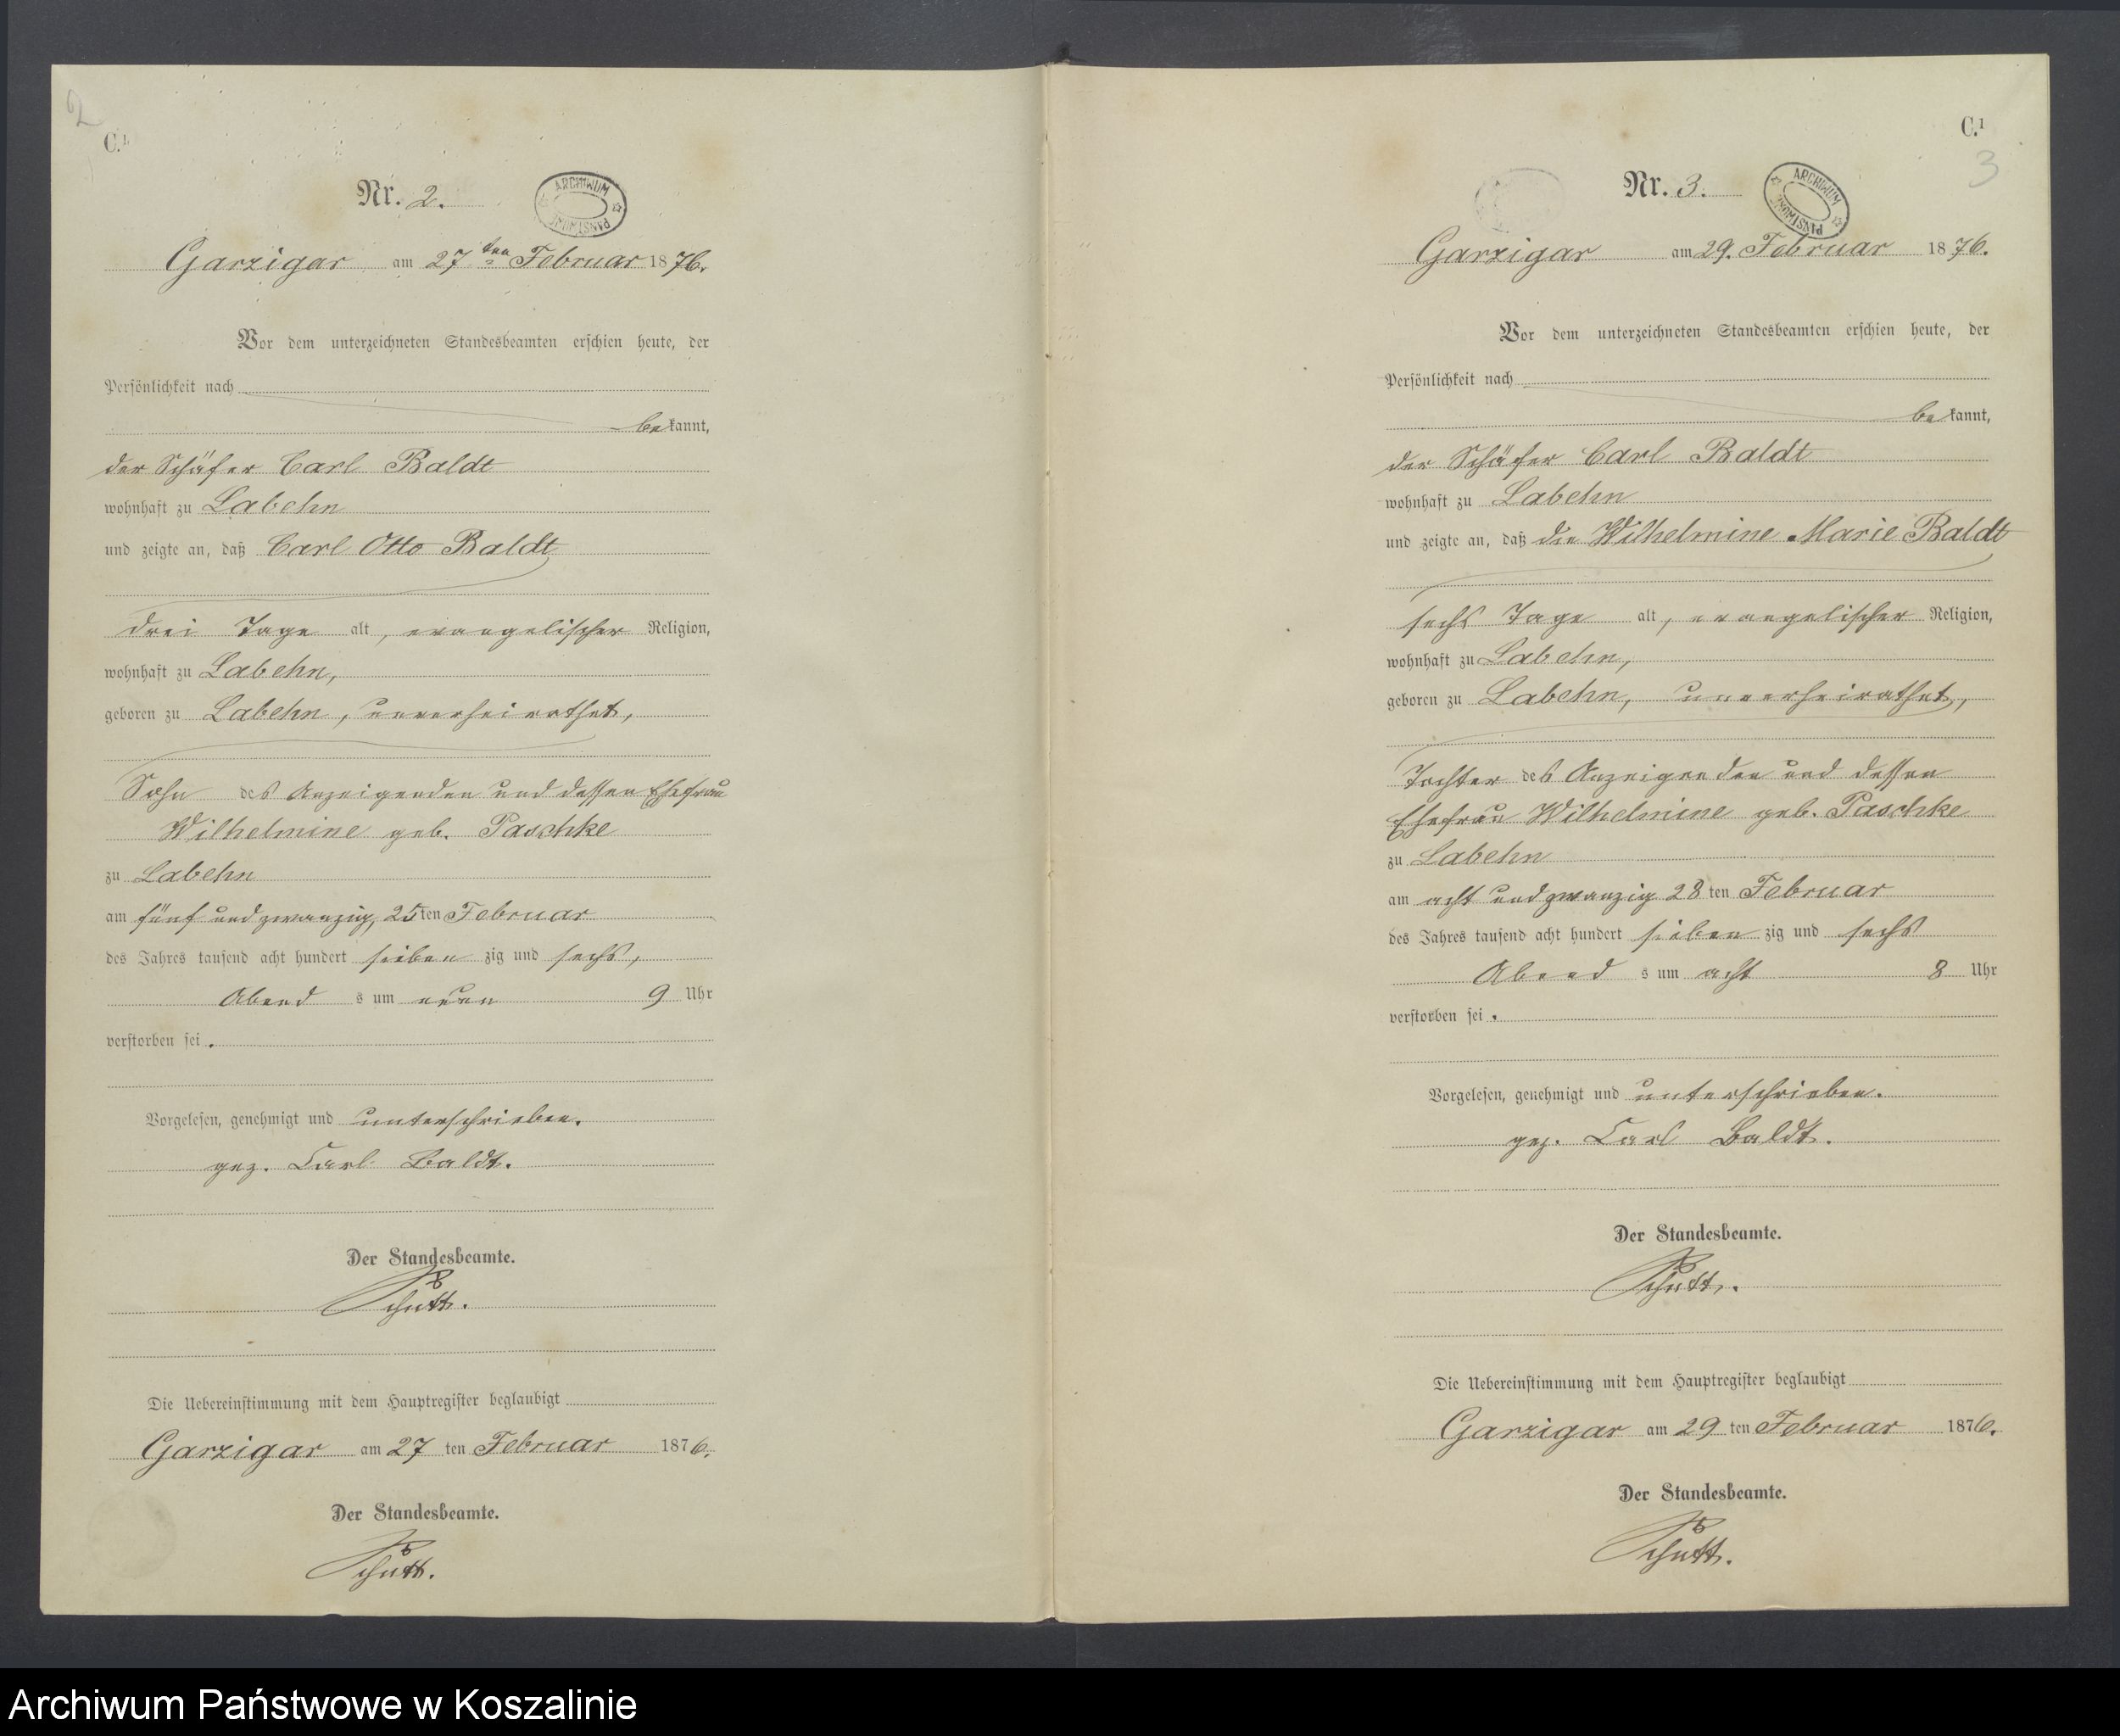 2
C.1.
Nr. 2.
ARCHIWUM PAŃSTWOWE
Garzigar am 27ten Februar 1876.
Vor dem unterzeichneten Standesbeamten erschien heute, der
Persönlichkeit nach
bekannt,
der Schäfer Carl Baldt
wohnhaft zu Labehn
und zeigte an, daß Carl Otto Baldt
drei Tage alt, evangelischer Religion,
wohnhaft zu Labehn,
geboren zu Labehn, unverheirathet,
Sohn des Anzeigenden und dessen Ehefrau
Wilhelmine geb. Paschke
zu Labehn
am fünf und zwanzig, 25ten Februar
des Jahres tausend acht hundert siebenzig und sechs,
Abends um neun 9 Uhr
verstorben sei.
Vorgelesen, genehmigt und unterschrieben.
gez. Carl Baldt.
Der Standesbeamte.
Schütt.
Die Uebereinstimmung mit dem Hauptregister beglaubigt
Garzigar am 27ten Februar 1876.
Der Standesbeamte.
Schütt.
C.1
3
Nr. 3.
ARCHIWUM PAŃSTWOWE
Garzigar am 29. Februar 1876.
Vor dem unterzeichneten Standesbeamten erschien heute, der
Persönlichkeit nach
bekannt,
der Schäfer Carl Baldt
wohnhaft zu Labehn
und zeigte an, daß die Wilhelmine Marie Baldt
sechs Tage alt, evangelischer Religion,
wohnhaft zu Labehn,
geboren zu Labehn, unverheirathet,
Tochter des Anzeigenden und dessen
Ehefrau Wilhelmine geb. Paschke
zu Labehn
am acht und zwanzig 28ten Februar
des Jahres tausend acht hundert siebenzig und sechs
Abends um acht 8 Uhr
verstorben sei.
Vorgelesen, genehmigt und unterschrieben.
gez. Carl Baldt.
Der Standesbeamte.
Schütt.
Die Uebereinstimmung mit dem Hauptregister beglaubigt
Garzigar am 29ten Februar 1876.
Der Standesbeamte.
Schütt.
Archiwum Państwowe w Koszalinie